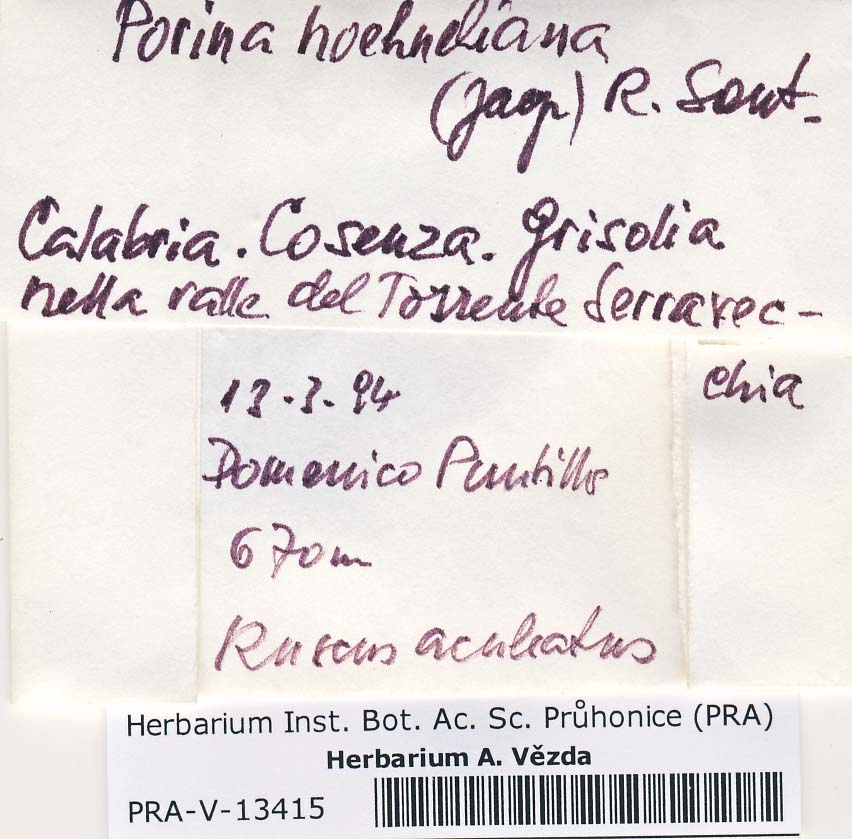 Porina hoehneliana
(Jaap) R. Sant.
Calabria. Cosenza. Grisolia
nella valle del Torrente Serravec-
chia
13.3.94
Domenico Puntillo
670m
Ruscus aculeatus
Herbarium Inst. Bot. Ac. Sc. Průhonice (PRA)
Herbarium A. Vězda
PRA-V-13415